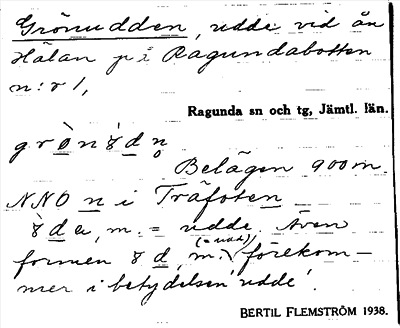 Grönudden, udde vid ån
Hälan på Ragundabotten
n:r 1,
Ragunda sn och tg, Jämtl. län.
Belägen 900 m.
NNO n i Träfoten
m. = udde. Även
formen d, m. (= udd) förekom-
mer i betydelsen 'udde'.
BERTIL FLEMSTRÖM 1938.